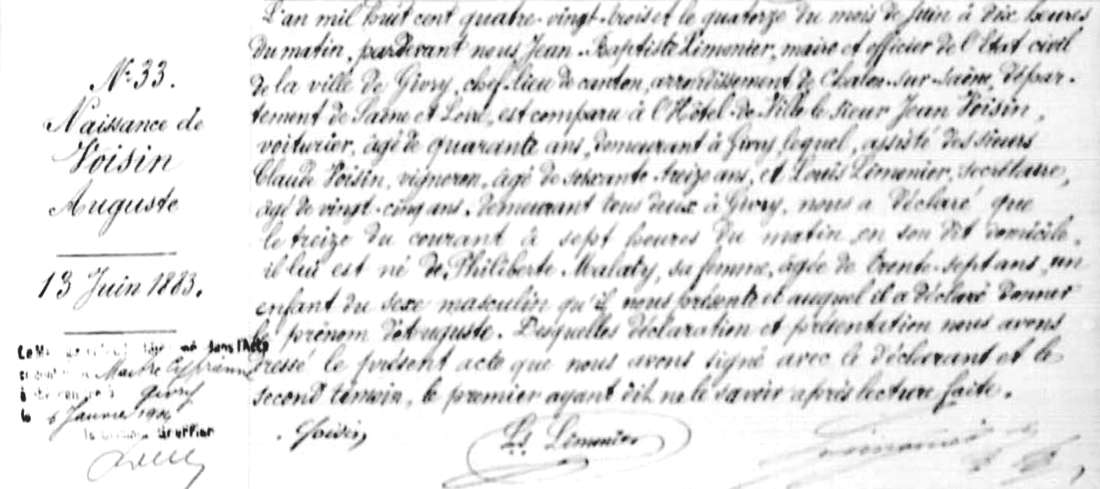 N.° 33.
Naissance de
Voisin
Auguste
13 Juin 1883.
dans l'Acte
Maitre Cyprienne
Givry
le 6 Janvier
Greffier
L'an mil huit cent quatre-vingt-trois et le quatorze du mois de Juin à dix heures
du matin, pardevant nous, Jean-Baptiste Limonier, maire et officier de l'Etat civil
de la ville de Givry, chef-lieu de canton, arrondissement de Chalon-sur-Saône, dépar-
tement de Saône et Loire, est comparu à l'Hôtel-de-Ville le sieur Jean Voisin,
voiturier, âgé de quarante ans, demeurant à Givry, lequel, assisté des sieurs
Claude Voisin, vigneron, âgé de soixante-treize ans, et Louis Limonier, secrétaire,
âgé de vingt-cinq ans, demeurant tous deux à Givry, nous a déclaré que
le treize du courant à sept heures du matin en son dit domicile,
il lui est né de Philiberte Malaty, sa femme, âgée de trente-sept ans, un
enfant du sexe masculin qu'il nous présente et auquel il a déclaré donner
le prénom d'Auguste. Desquelles déclaration et présentation nous avons
dressé le présent acte que nous avons signé avec le déclarant et le
second témoin, le premier ayant dit ne le savoir après lecture faite.
Voisin
Ls. Limonier
Limonier